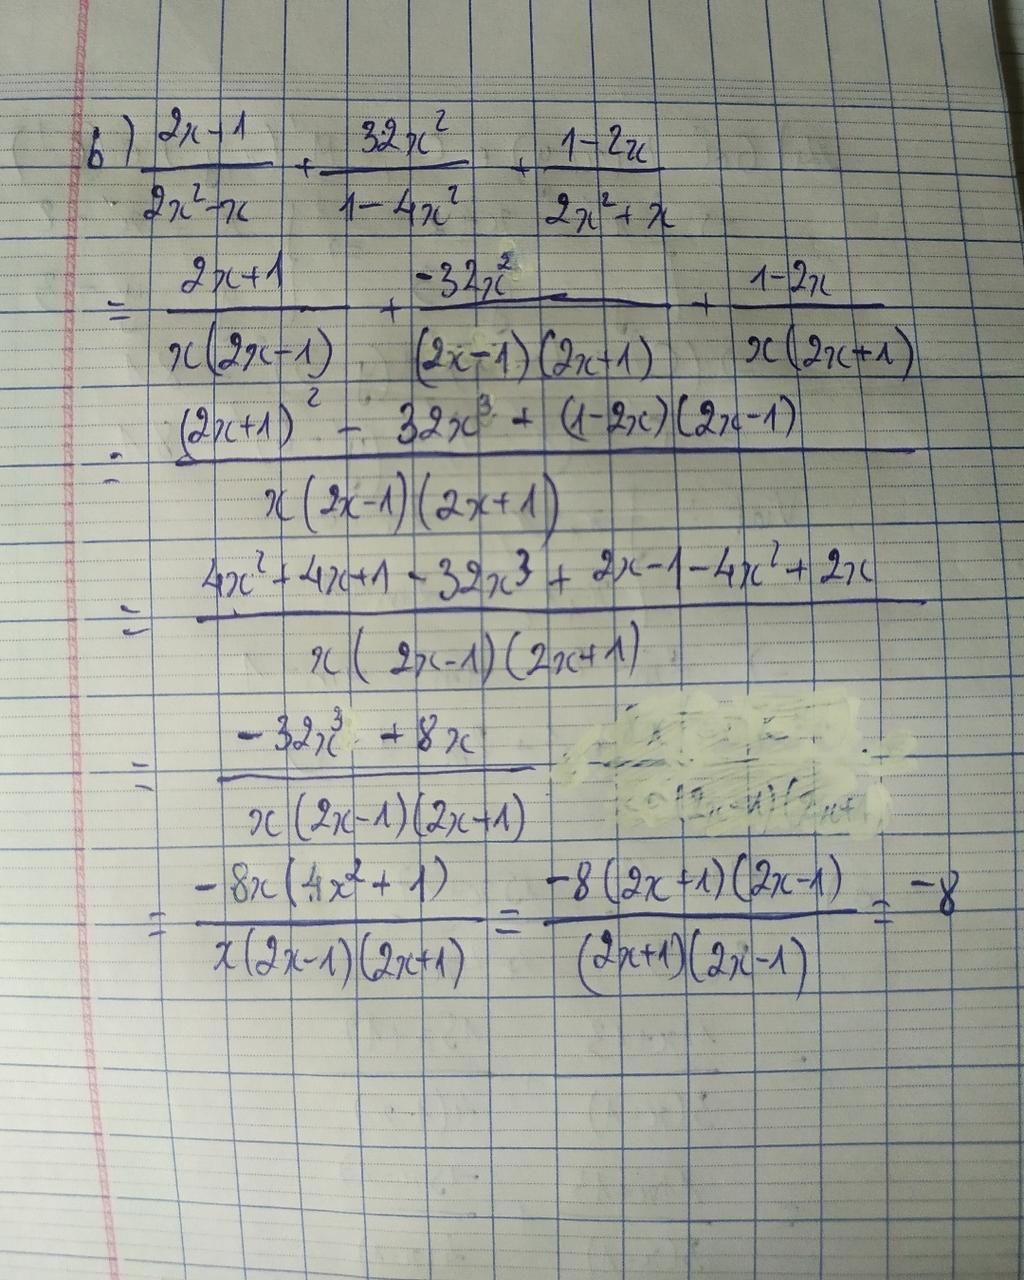 b) \frac{2x+1}{2x^2-x} + \frac{32x^2}{1-4x^2} + \frac{1-2x}{2x^2+x}
= \frac{2x+1}{x(2x-1)} + \frac{-32x^2}{(2x-1)(2x+1)} + \frac{1-2x}{x(2x+1)}
= \frac{(2x+1)^2 - 32x^3 + (1-2x)(2x-1)}{x(2x-1)(2x+1)}
= \frac{4x^2+4x+1-32x^3+2x-1-4x^2+2x}{x(2x-1)(2x+1)}
= \frac{-32x^3+8x}{x(2x-1)(2x+1)}
= \frac{-8x(4x^2+1)}{x(2x-1)(2x+1)} = \frac{-8(2x+1)(2x-1)}{(2x+1)(2x-1)} = -8